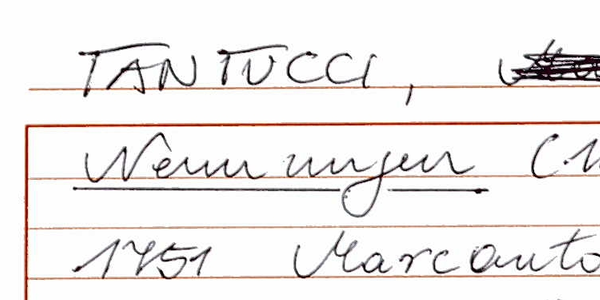 TANTUCCI,
Nennungen
1751 Marcanto